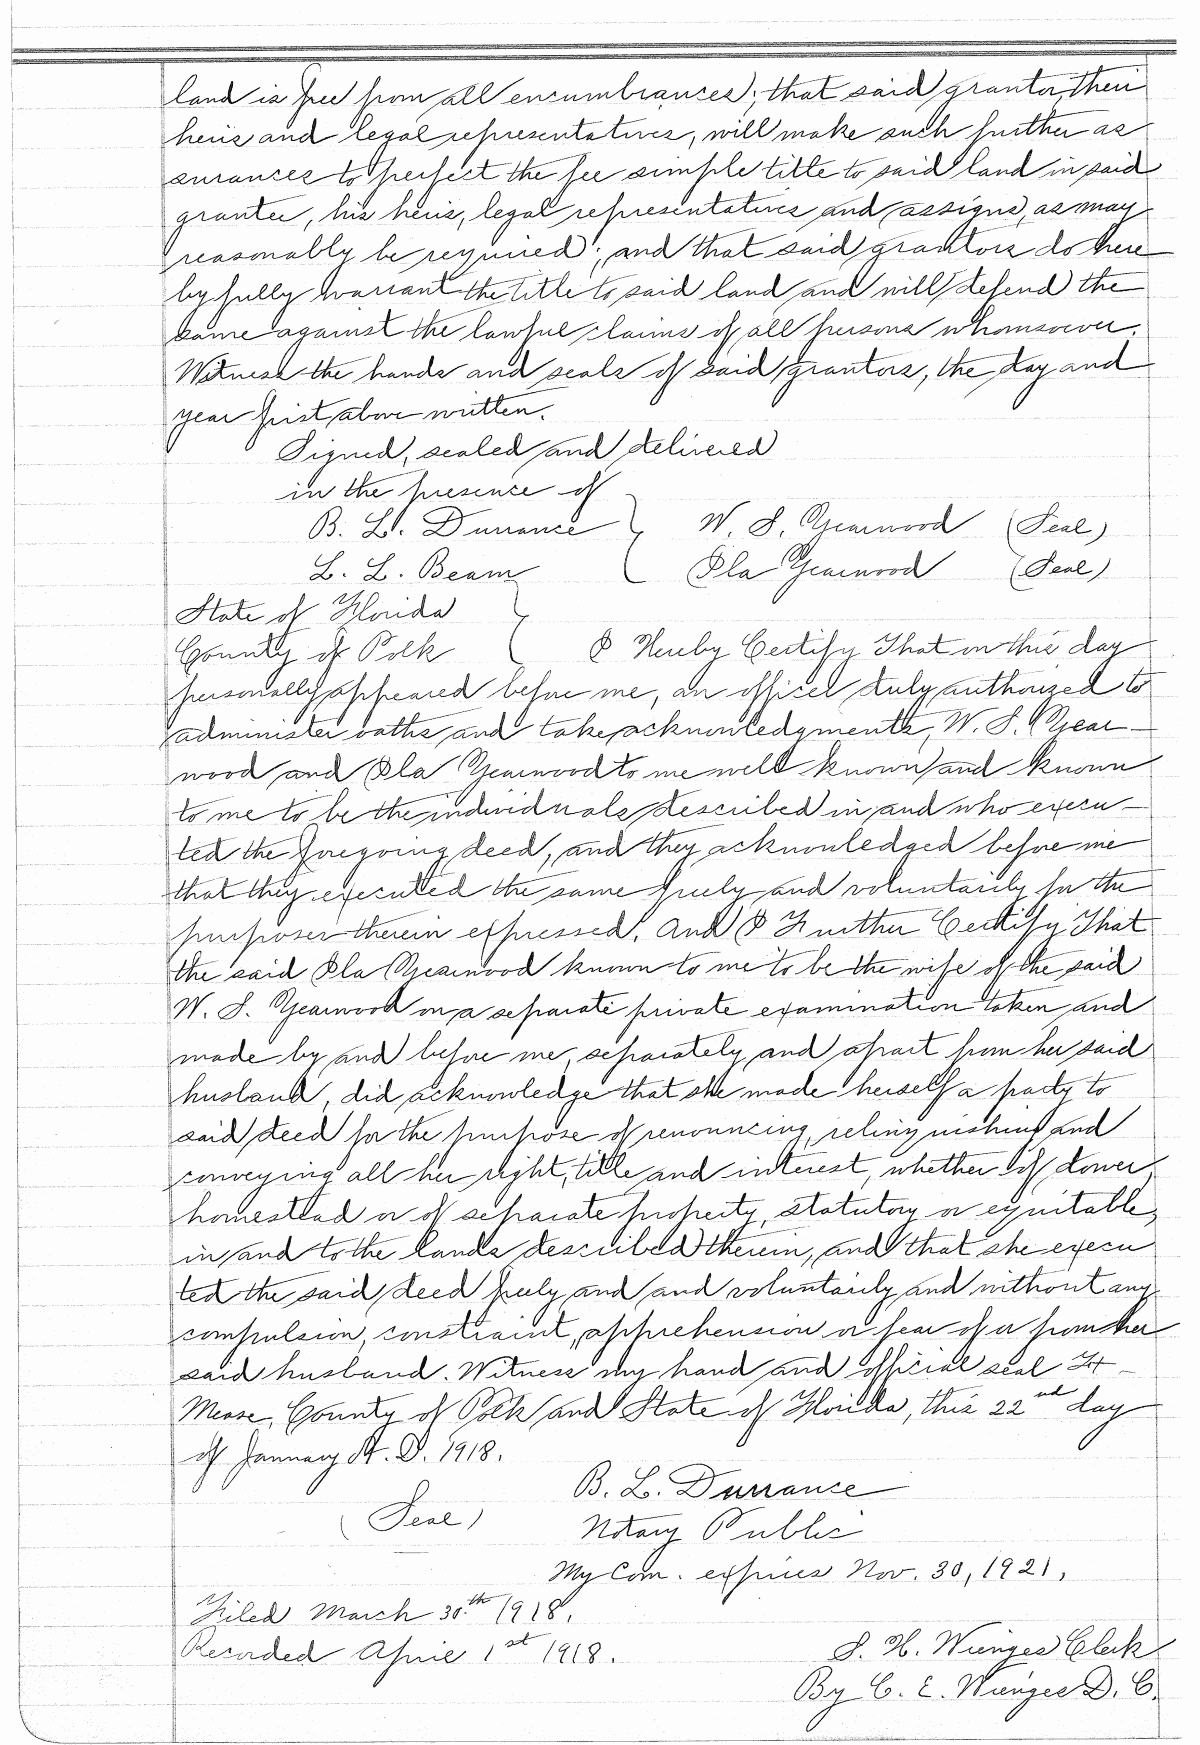 land is free from all encumbrances; that said grantor, their
heirs and legal representatives, will make such further as
surances to perfect the fee simple title to said land in said
grantee, his heirs, legal representatives and assigns, as may
reasonably be required; and that said grantors do here
by fully warrant the title to said land and will defend the
same against the lawful claims of all persons whomsoever.
Witness the hands and seals of said grantors, the day and
year first above written.
Signed, sealed and delivered
in the presence of
B. L. Durrance } W. S. Yearwood (Seal)
L. L. Beam { Ila Yearwood (Seal)
State of Florida }
County of Polk { I Hereby Certify That on this day
personally appeared before me, an officer duly authorized to
administer oaths and take acknowledgments, W. S. Year-
wood and Ila Yearwood to me well known and known
to me to be the individuals described in and who execu-
ted the foregoing deed, and they acknowledged before me
that they executed the same freely and voluntarily for the
purposes therein expressed. And I Further Certify That
the said Ila Yearwood known to me to be the wife of the said
W. S. Yearwood on a separate private examination taken and
made by and before me, separately and apart from her said
husband, did acknowledge that she made herself a party to
said deed for the purpose of renouncing, relinquishing and
conveying all her right, title and interest, whether of dower,
homestead or of separate property, statutory or equitable,
in and to the lands described therein, and that she execu
ted the said deed freely and and voluntarily and without any
compulsion, constraint, apprehension or fear of or from her
said husband. Witness my hand and official seal Ft
Mease, County of Polk and State of Florida, this 22nd day
of January A. D. 1918.
B. L. Durrance
(Seal) Notary Public
My Com. expires Nov. 30, 1921.
Filed March 30th 1918.
Recorded April 1st 1918.
J. H. Wienges Clerk
By C. E. Wienges D. C.